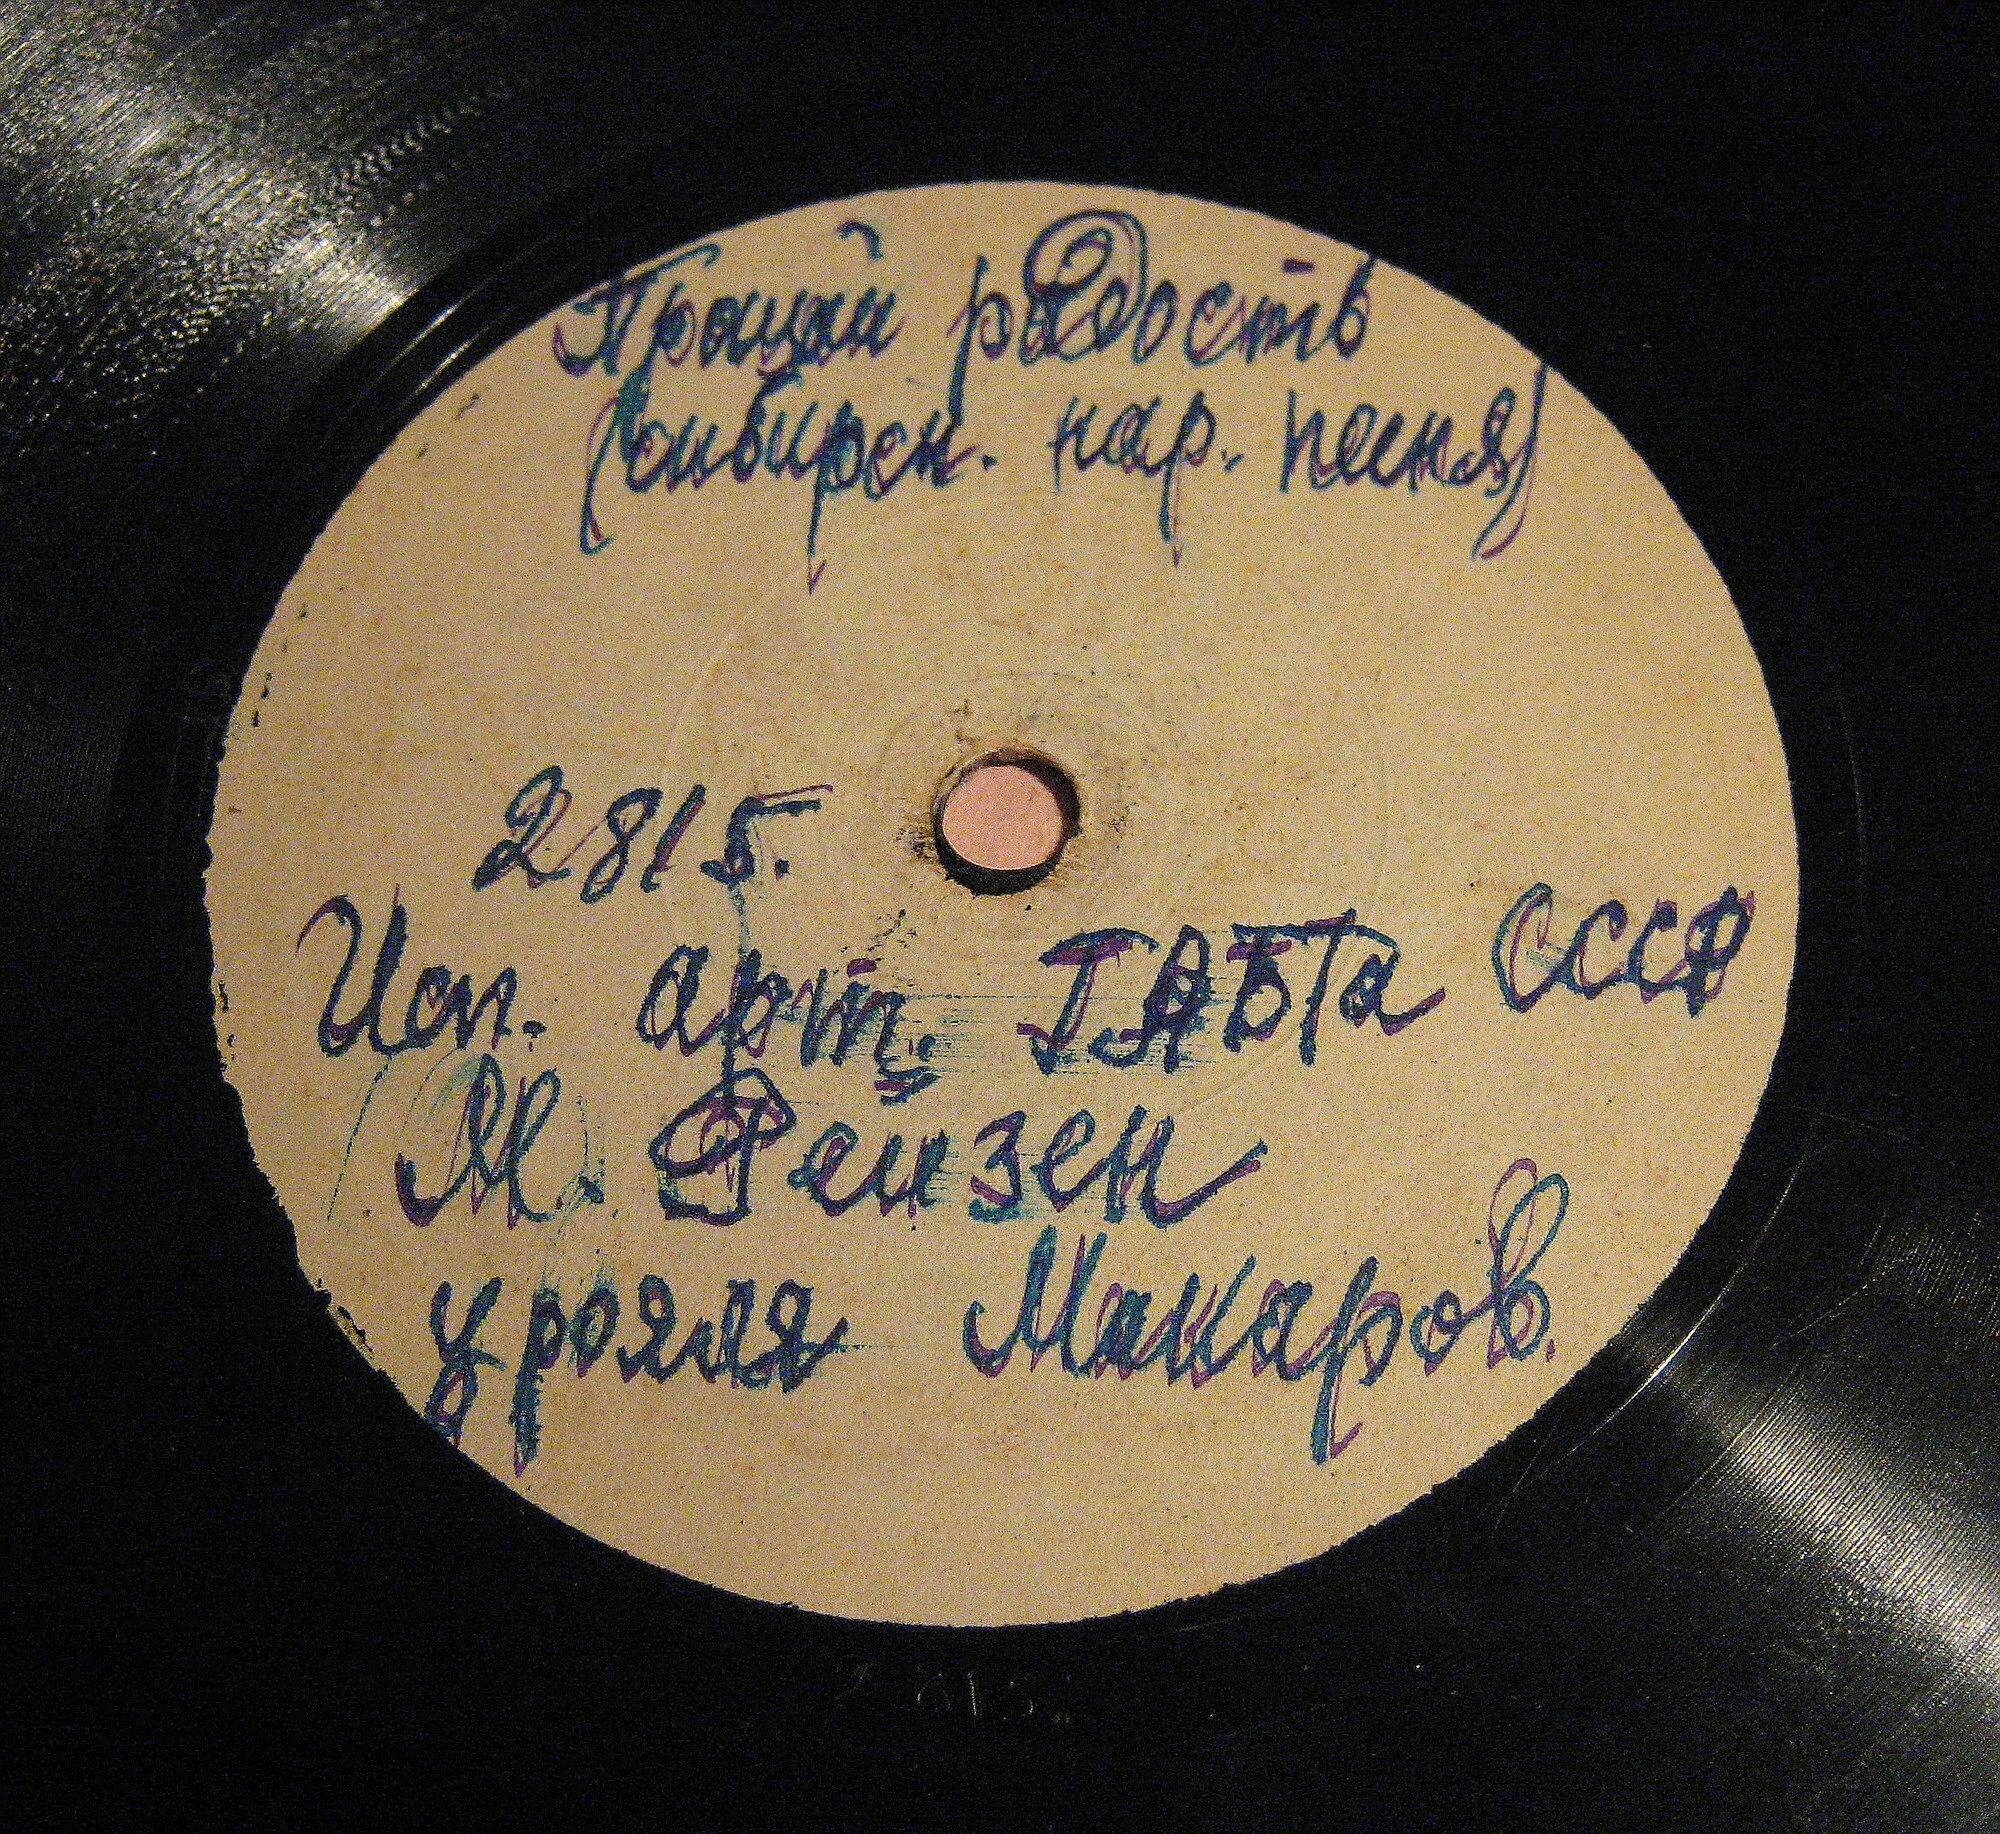 Прощай радость
(сибирск. нар. песня)
2815.
Исп. арт. ГАБТа СССР
М. Рейзен
у рояля Макаров.